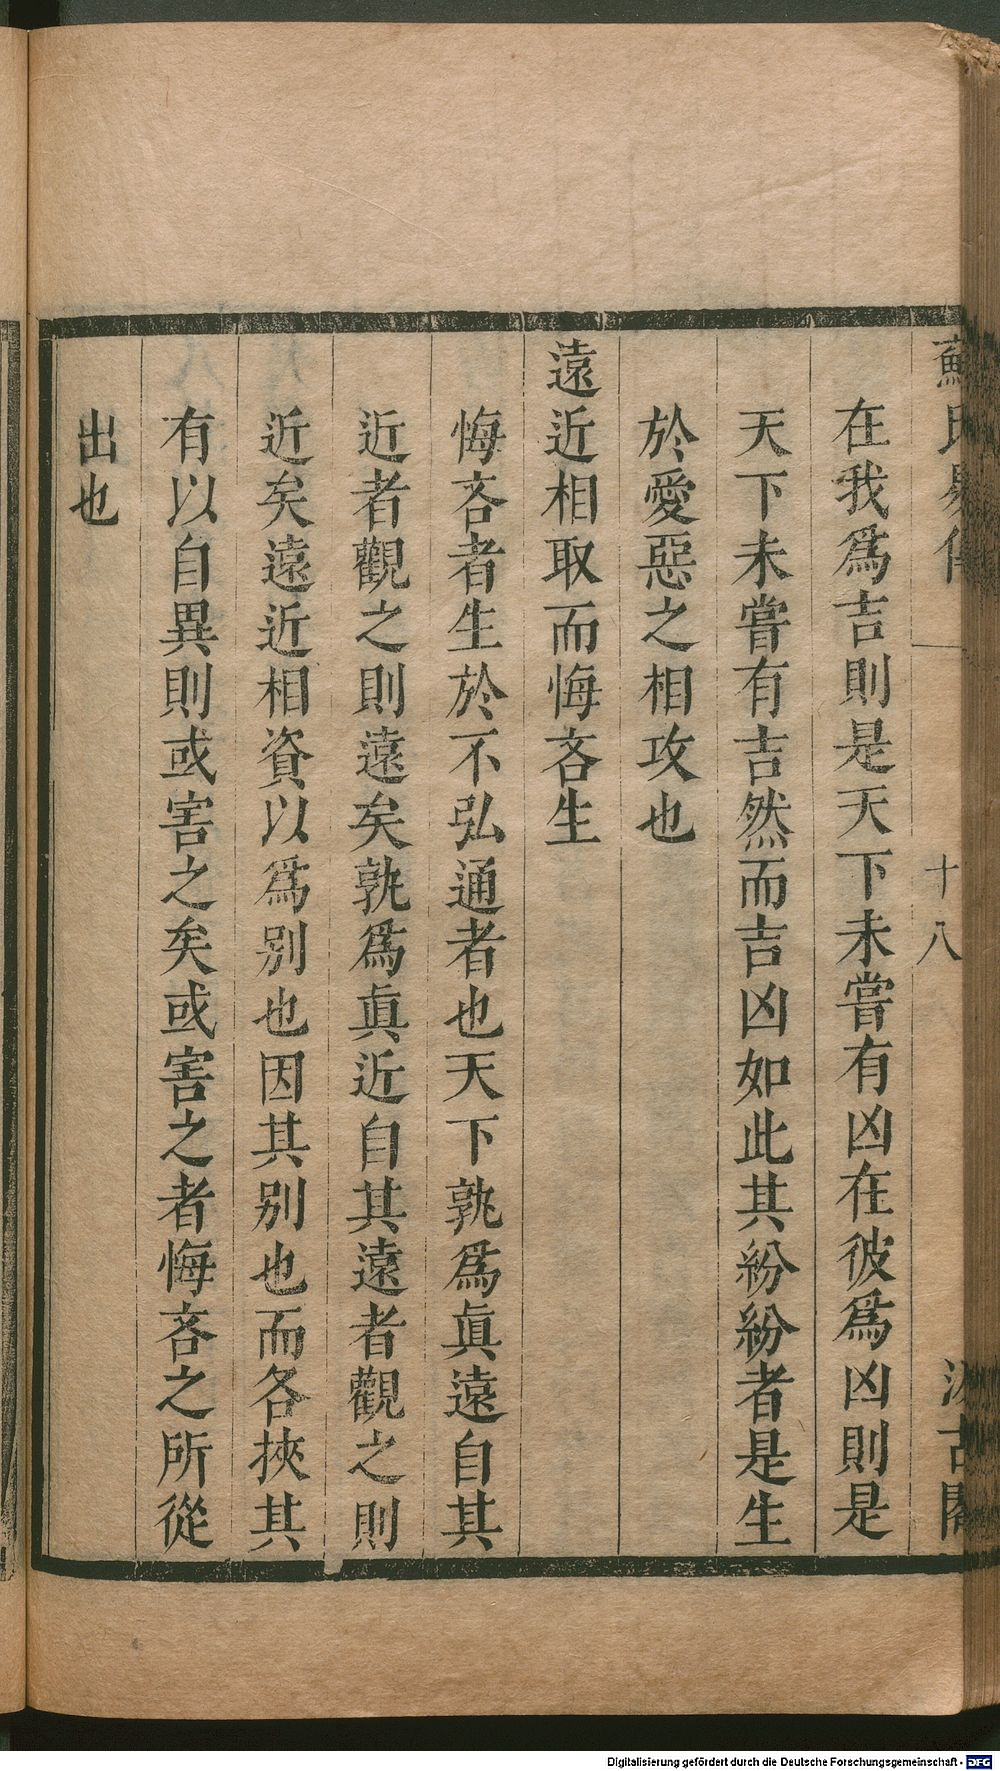 蘇氏易傳 十八 汲古閣
在我爲吉則是天下未嘗有凶在彼爲凶則是
天下未嘗有吉然而吉凶如此其紛紛者是生
於愛惡之相攻也
遠近相取而悔吝生
悔吝者生於不弘通者也天下孰爲眞遠自其
近者觀之則遠矣孰爲眞近自其遠者觀之則
近矣遠近相資以爲别也因其别也而各挾其
有以自異則或害之矣或害之者悔吝之所從
出也
Digitalisierung gefördert durch die Deutsche Forschungsgemeinschaft - DFG